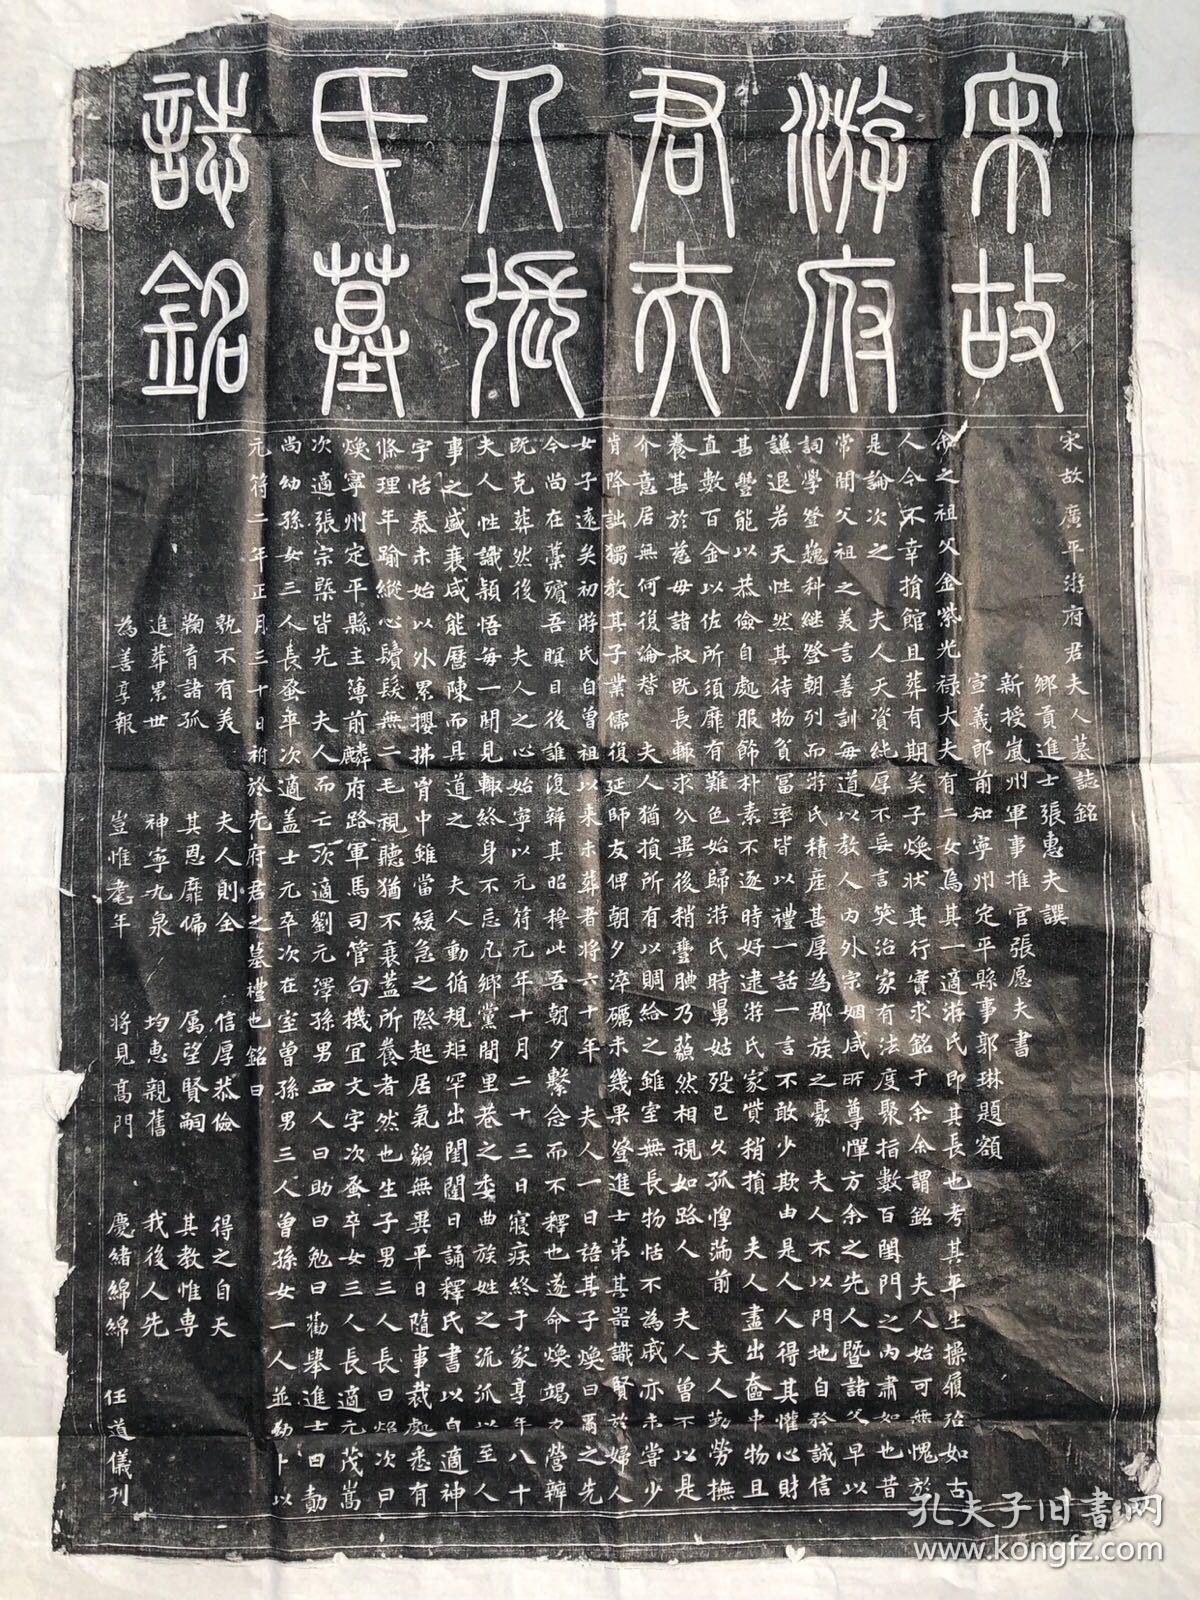 宋故
游府
君夫
人張
氏墓
誌銘
宋故廣平游府君夫人墓誌銘
鄉貢進士張惠夫譔
新授嵐州軍事推官張愿夫書
宣義郎前知寧州定平縣事郭琳題額
余之祖父金紫光祿大夫有二女焉其一適游氏即其長也考其平生操履殆如古
人今不幸捐館且葬有期矣子煥狀其行實求銘于余余謂銘夫人始可無愧於
是論次之夫人天資純厚不妄言笑治家有法度聚指數百閨門之內肅如也昔
常聞父祖之美言善訓每道以教人內外宗姻咸所尊憚方余之先人暨諸父早以
詞學登巍科継登朝列而游氏積產甚厚為郡族之豪夫人不以門地自矜誠信
謙退若天性然其待物貧富率皆以禮一話一言不敢少欺由是人人得其懽心財
甚豐能以恭儉自處服飾朴素不逐時好逮游氏家貲稍損夫人盡出奩中物且
直數百金以佐所須靡有難色始歸游氏時舅姑歿已久孤惸滿前夫人劬勞撫
養甚於慈母諸叔既長輒求分異後稍豐腆乃藐然相視如路人夫人曾不以是
介意居無何復淪替夫人猶損所有以賙給之雖室無長物怙不為戚亦未嘗少
肯降詘獨教其子業儒復延師友俾朝夕淬礪未幾果登進士第其器識賢於婦人
女子遠矣初游氏自曾祖以來未葬者將六十年夫人一日語其子煥曰爾之先
今尚在藁殯吾瞑目後誰復辨其昭穆此吾朝夕繫念而不釋也遂命煥竭力營辦
既克葬然後夫人之心始寧以元符元年十月二十三日寢疾終于家享年八十
夫人性識穎悟每一聞見輒終身不忘凡鄉黨閭里巷之委曲族姓之流派以至人
事之盛衰咸能歷陳而具道之夫人動循規矩罕出閨閫日誦釋氏書以自適神
宇恬泰未始以外累攖拂胷中雖當緩急之際起居氣貌無異平日隨事裁處悉有
條理年踰縱心鬢髮無二毛視聽猶不衰蓋所養者然也生子男三人長曰炤次曰
煥寧州定平縣主簿前麟府路軍馬司管句機宜文字次蚤卒女三人長適元茂嵩
次適張宗㮣皆先夫人而亡次適劉元澤孫男四人曰助曰勉曰勸舉進士曰勳
尚幼孫女三人長蚤卒次適盖士元卒次在室曾孫男三人曾孫女一人並幼卜以
元符二年正月三十日祔於先府君之墓禮也銘曰
孰不有美夫人則全信厚恭儉得之自天
鞠育諸孤其恩靡偏属望賢嗣其教惟専
追葬累世神寧九泉均惠親舊我後人先
為善享報豈惟耄年將見高門慶緒綿綿任道儀刋
孔夫子旧书网
www.kongfz.com